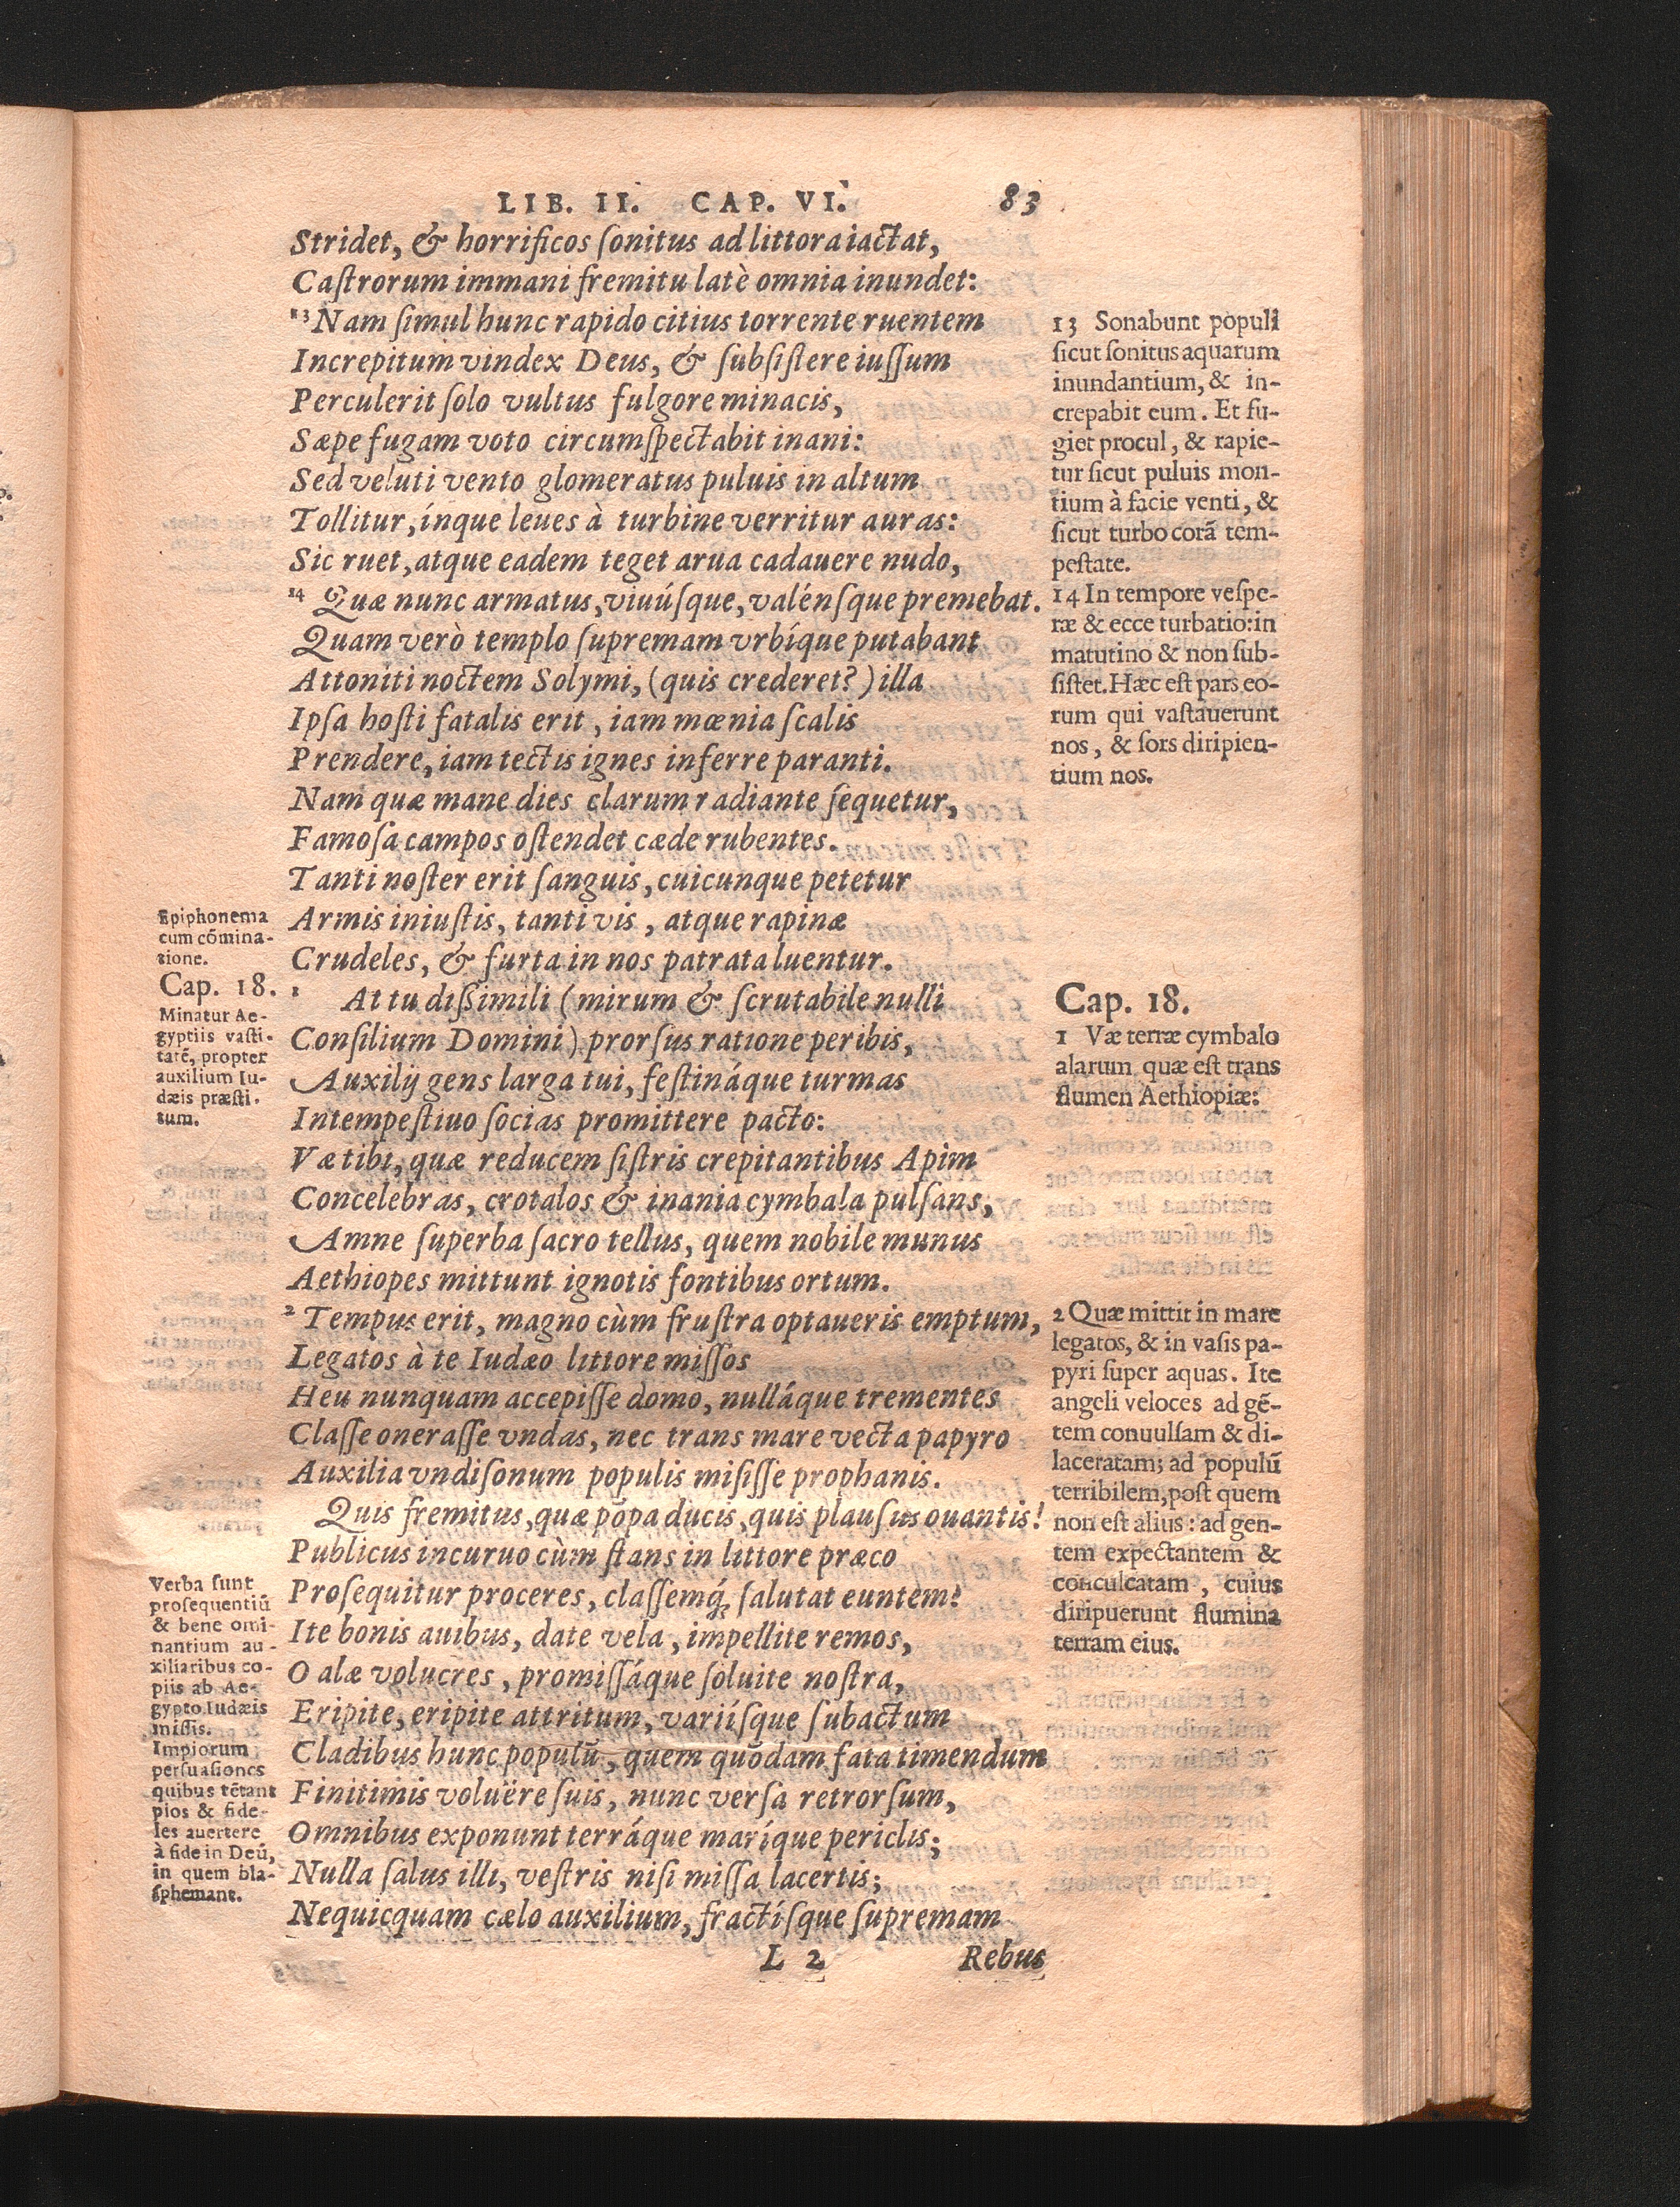 LIB. II. CAP. VI. 83
Stridet, & horrificos ſonitus ad littora iactat,
Caſtrorum immani fremitu latè omnia inundet:
13 Nam ſimul hunc rapido citius torrente ruentem
Increpitum vindex Deus, & ſubſiſtere iuſſum
Perculerit ſolo vultus fulgore minacis,
Sæpe fugam voto circumſpectabit inani:
Sed veluti vento glomeratus puluis in altum
Tollitur, ínque leues à turbine verritur auras:
Sic ruet, atque eadem teget arua cadauere nudo,
14 Quæ nunc armatus, viuúſque, valénſque premebat.
Quam verò templo ſupremam vrbíque putabant
Attoniti noctem Solymi, (quis crederet?) illa
Ipſa hoſti fatalis erit, iam mœnia ſcalis
Prendere, iam tectis ignes inferre paranti.
Nam quæ mane dies clarum radiante ſequetur,
Famoſa campos oſtendet cæde rubentes.
Tanti noſter erit ſanguis, cuicunque petetur
Armis iniuſtis, tanti vis, atque rapinæ
Crudeles, & furta in nos patrata luentur.
1 At tu diſſimili (mirum & ſcrutabile nulli
Conſilium Domini) prorſus ratione peribis,
Auxilij gens larga tui, feſtináque turmas
Intempeſtiuo ſocias promittere pacto:
Væ tibi, quæ reducem ſiſtris crepitantibus Apim
Concelebras, crotalos & inania cymbala pulſans,
Amne ſuperba ſacro tellus, quem nobile munus
Aethiopes mittunt ignotis fontibus ortum.
2 Tempus erit, magno cùm fruſtra optaueris emptum,
Legatos à te Iudæo littore miſſos
Heu nunquam accepiſſe domo, nulláque trementes
Claſſe oneraſſe vndas, nec trans mare vecta papyro
Auxilia vndiſonum populis miſiſſe prophanis.
Quis fremitus, quæ pōpa ducis, quis plauſus ouantis!
Publicus incuruo cùm ſtans in littore præco
Proſequitur proceres, claſſemq́; ſalutat euntem!
Ite bonis auibus, date vela, impellite remos,
O alæ volucres, promiſſáque ſoluite noſtra,
Eripite, eripite attritum, variíſque ſubactum
Cladibus hunc populū, quem quōdam fata timendum
Finitimis voluëre ſuis, nunc verſa retrorſum,
Omnibus exponunt terráque maríque periclis;
Nulla ſalus illi, veſtris niſi miſſa lacertis;
Nequicquam cælo auxilium, fractíſque ſupremam
L 2 Rebus
Epiphonema
cum cōmina-
tione.
Cap. 18.
Minatur Ae-
gyptiis vaſti-
tatē, propter
auxilium Iu-
dæis præſti-
tum.
Verba ſunt
proſequentiū
& bene omi-
nantium au-
xiliaribus co-
piis ab Ae-
gypto Iudæis
miſſis.
Impiorum
perſuaſiones
quibus tētant
pios & fide-
les auertere
à fide in Deū,
in quem bla-
ſphemant.
13 Sonabunt populi
ſicut ſonitus aquarum
inundantium, & in-
crepabit eum. Et fu-
giet procul, & rapie-
tur ſicut puluis mon-
tium à facie venti, &
ſicut turbo corā tem-
peſtate.
14 In tempore veſpe-
ræ & ecce turbatio: in
matutino & non ſub-
ſiſtet. Hæc eſt pars eo-
rum qui vaſtauerunt
nos, & ſors diripien-
tium nos.
Cap. 18.
1 Væ terræ cymbalo
alarum quæ eſt trans
flumen Aethiopiæ:
2 Quæ mittit in mare
legatos, & in vaſis pa-
pyri ſuper aquas. Ite
angeli veloces ad gē-
tem conuulſam & di-
laceratam; ad populū
terribilem, poſt quem
non eſt alius: ad gen-
tem expectantem &
conculcatam, cuius
diripuerunt flumina
terram eius.